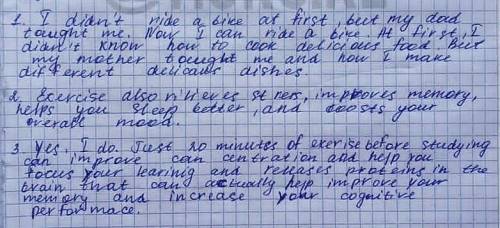 1. I didn't ride a bike at first, but my dad
tought me. Now I can ride a bike. At first, I
didn't know how to cook delicious food. But
my mother tought me and now I make
different delicaus dishes.
2. Exercise also rilieves stress, improves memory,
helps you sleep better, and boosts your
overall mood.
3. Yes, I do. Just 20 minutes of exerise before studying
can improve can centration and help you
focus your learing and releases proteins in the
brain that can actually help improve your
memory and increase your cognitive
performace.